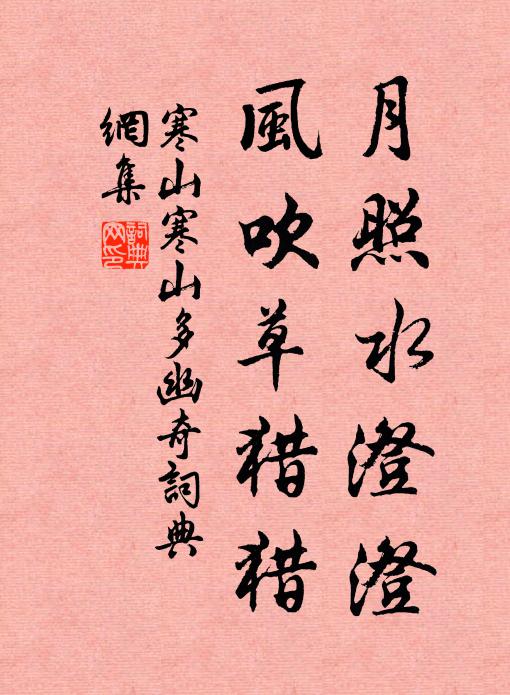 月照水澄澄
風吹草猎猎
寒山寒山多幽奇詞典
網集
詞典
网印